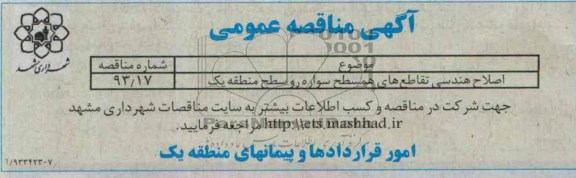 آگهی مناقصه عمومی
شهرداری مشهد
موضوع شماره مناقصه
اصلاح هندسی تقاطع‌های همسطح سواره رو سطح منطقه یک ۹۳٫۱۷
جهت شرکت در مناقصه و کسب اطلاعات بیشتر به سایت مناقصات شهرداری مشهد
http://ets.mashhad.ir مراجعه فرمایید.
امور قراردادها و پیمانهای منطقه یک
۱/۹۳۳۴۲۳۰۷